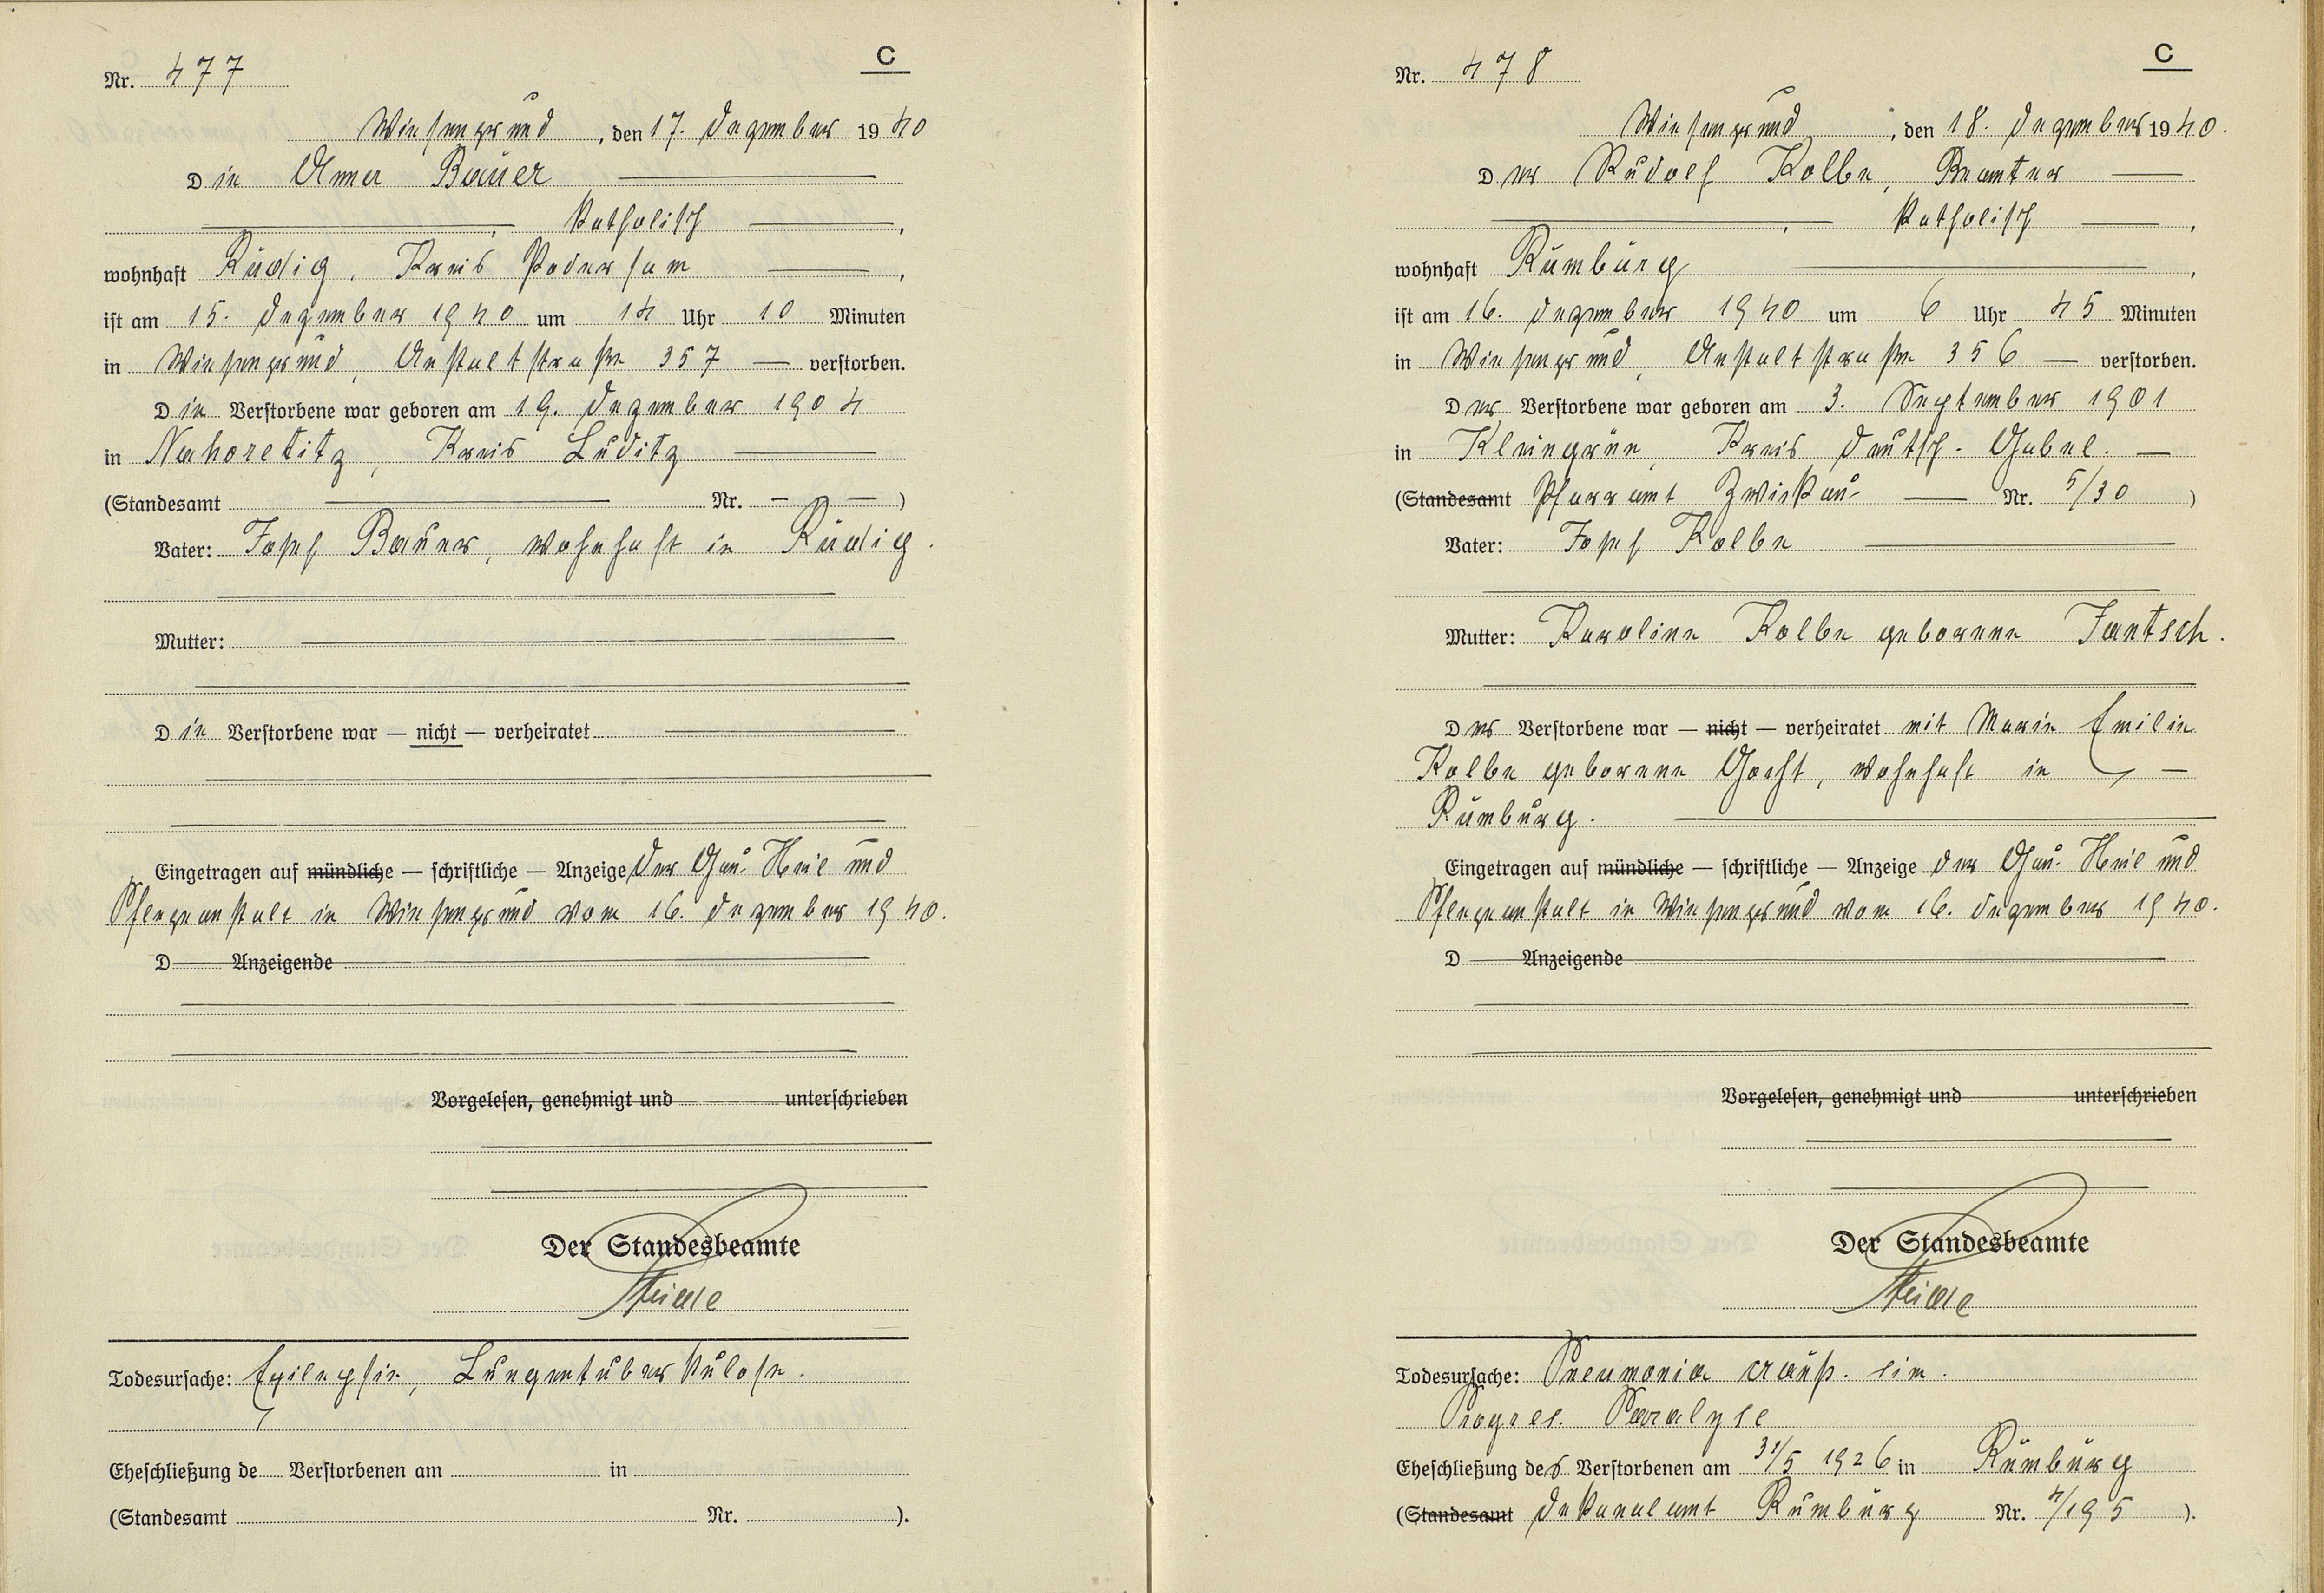 C
Nr. 477
Wiesengrund, den 17. Dezember 1940
Die Anna Bauer
, katholisch ,
wohnhaft Rudig, Kreis Podersam ,
ist am 15. Dezember 1940 um 14 Uhr 10 Minuten
in Wiesengrund, Anstaltstraße 357 — verstorben.
Die Verstorbene war geboren am 19. Dezember 1904
in Nahoretitz, Kreis Luditz
(Standesamt — Nr. — )
Vater: Josef Bauer, wohnhaft in Rudig.
Mutter:
Die Verstorbene war — nicht — verheiratet
Eingetragen auf mündliche — schriftliche — Anzeige der Gau-Heil und
Pflegeanstalt in Wiesengrund vom 16. Dezember 1940.
D Anzeigende
Vorgelesen, genehmigt und unterschrieben
Der Standesbeamte
Todesursache: Epilepsie, Lungentuberkulose.
Eheschließung de Verstorbenen am in
(Standesamt Nr. ).
C
Nr. 478
Wiesengrund, den 18. Dezember 1940.
Der Rudolf Kolbe, Beamter
, katholisch ,
wohnhaft Rumburg ,
ist am 16. Dezember 1940 um 6 Uhr 45 Minuten
in Wiesengrund, Anstaltstraße 356 — verstorben.
Der Verstorbene war geboren am 3. September 1901
in Kleingrün, Kreis Deutsch-Gabel. —
(Standesamt Pfarramt Zwickau — Nr. 5/30 )
Vater: Josef Kolbe
Mutter: Karoline Kolbe geborene Jantsch.
Der Verstorbene war — nicht — verheiratet mit Marie Emilie
Kolbe geborene Gocht, wohnhaft in —
Rumburg.
Eingetragen auf mündliche — schriftliche — Anzeige der Gau-Heil und
Pflegeanstalt in Wiesengrund vom 16. Dezember 1940.
D Anzeigende
Vorgelesen, genehmigt und unterschrieben
Der Standesbeamte
Todesursache: Pneumonia croup. sin.
Progres. Paralyse
Eheschließung des Verstorbenen am 31/5 1926 in Rumburg
(Standesamt Dekanalamt Rumburg Nr. 4/195 ).